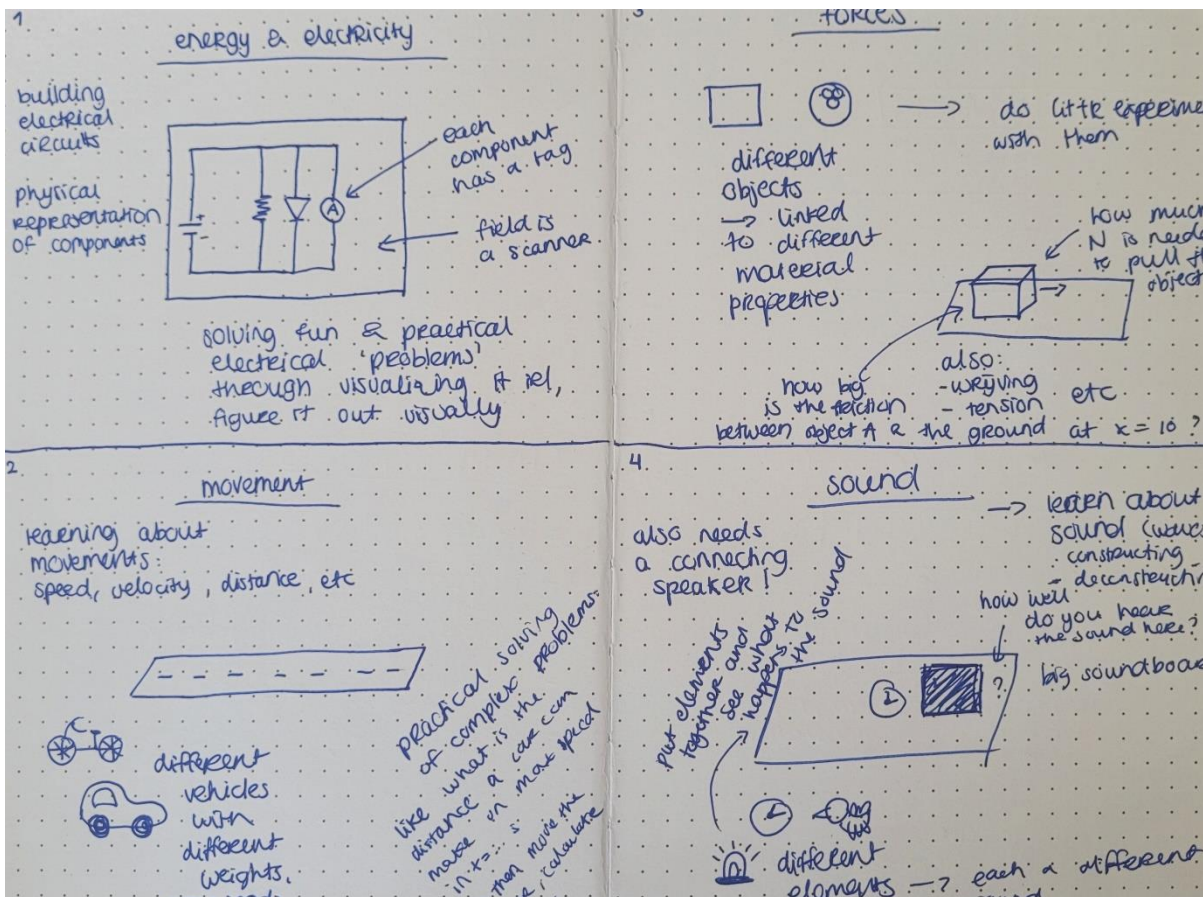 1
energy & electricity
building
electrical
circuits
physical
representation
of components
+
-
A
each
component
has a tag
field is
a scanner
solving fun & practical
electrical 'problems'
through visualizing it irl,
figure it out visually
2
movement
learning about
movements:
speed, velocity, distance, etc
different
vehicles
with
different
weights,
practical solving
of complex problems:
like what is the
distance a car can
make on max speed
in t=... s
then move the
calculate
3
forces
do little experime
with them
different
objects
→ linked
to different
material
properties
how much
N is neede
to pull th
object
how big
is the friction
between object A & the ground at x = 10 ?
also:
- wrijving
- tension etc
4
sound
also needs
a connecting
speaker!
→ learn about
sound (waves
- constructing
- deconstructin
how well
do you hear
the sound here?
?
big soundboar
put elements
together and
see what
happens to
the sound
different
elements → each a different